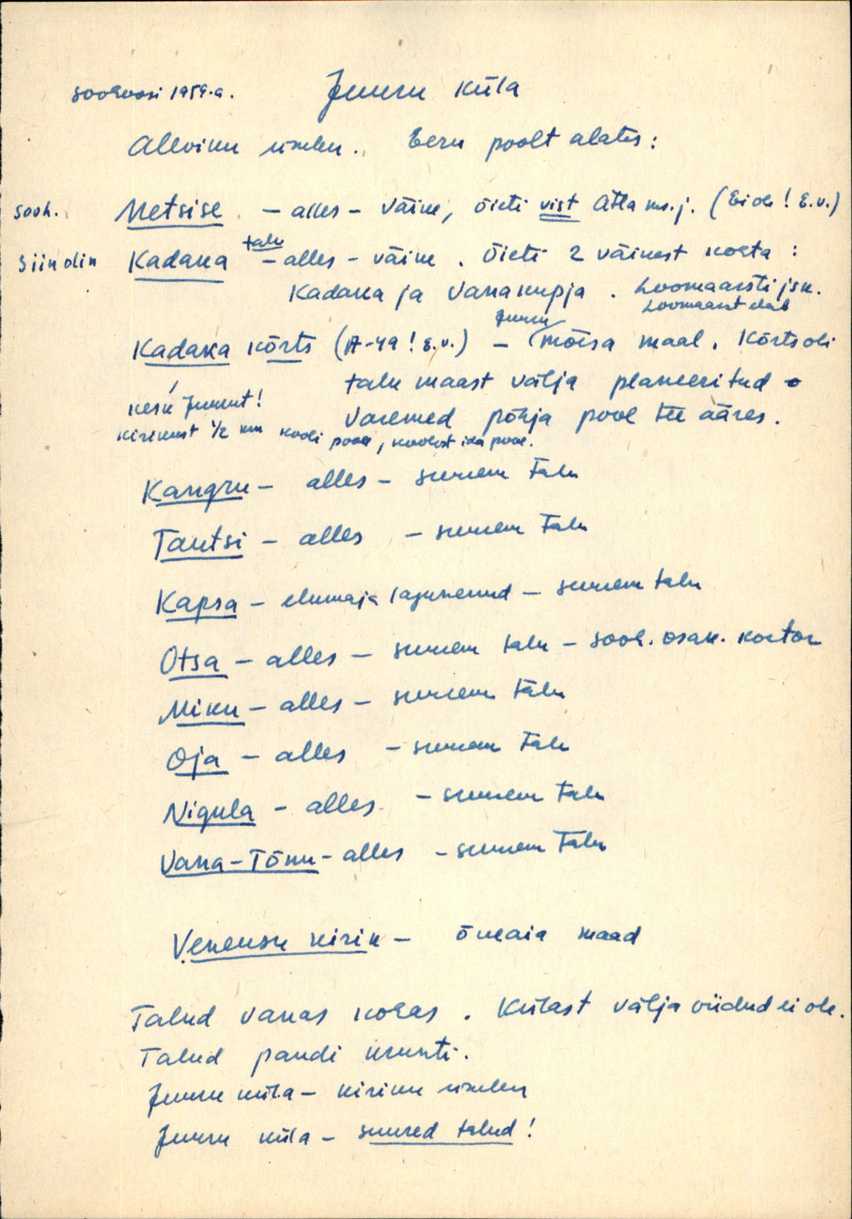 sovhoosi 1959.a. Juuru küla
Alleviku ümber. Eeru poolt alates:
sovh. Metsise - alles - väike, õieti vist Atla ms.j. (Ei ole! E.V.)
Siin olin Kadaka talu - alles - väike. Õieti 2 väikest kohta:
Kadaka ja Vanakupja. Loomaarsti jsk.
Loomaarst elab
Kadaka kõrts (A-49! E.V.) - Juuru mõisa maal. Kõrts oli
talu maast välja planeeritud -
kesk Juurut! Varemed põhja pool tee ääres.
Kirikust 1/2 km kooli poole, koolist ida pool.
Kangru - alles - suurem talu
Tautsi - alles - suurem talu
Kapsa - elumaja lagunenud - suurem talu
Otsa - alles - suurem talu - sovh. osak. kontor
Miku - alles - suurem talu
Oja - alles - suurem talu
Nigula - alles - suurem talu
Vana-Tõnu - alles - suurem talu
Veneusu kirik - õueaia maad
Talud vanas kohas. Külast välja viidud ei ole.
Talud pandi krunti.
Juuru küla - kiriku ümber
Juuru küla - suured talud!